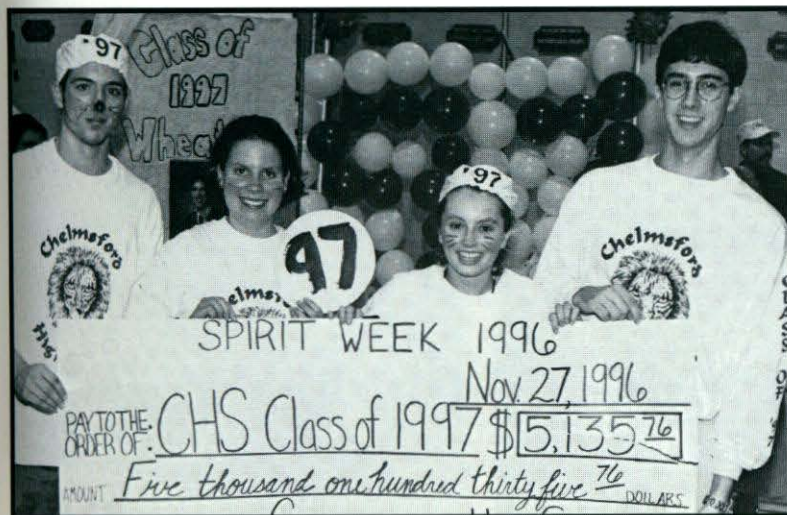 '97
Class of
1997
Whea
'97
97
Chelmsford
Chelmsfo
Chelmsford
High
CLASS OF '97
SPIRIT WEEK 1996
Nov. 27, 1996
PAY TO THE
ORDER OF: CHS Class of 1997 $ 5,135 76
AMOUNT Five thousand one hundred thirty five 76 DOLLARS